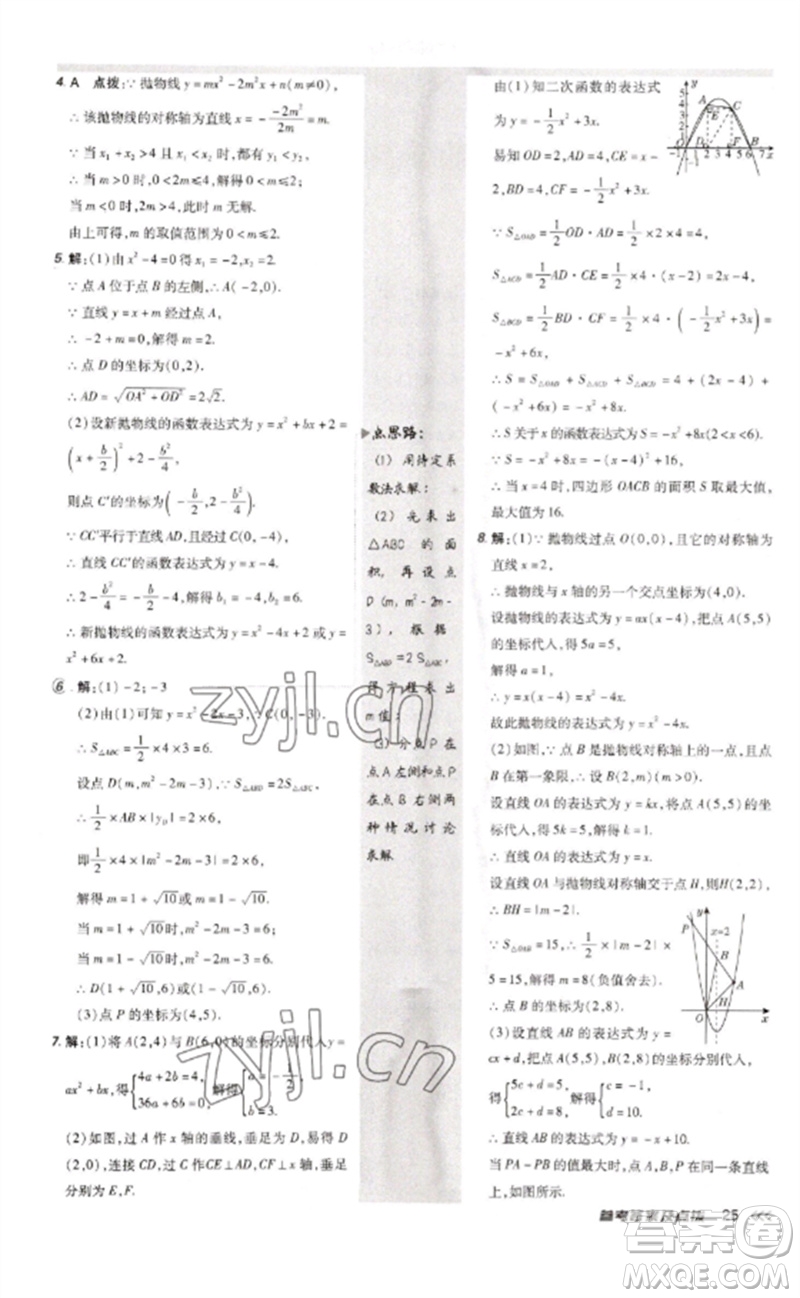 4. A 点拨:∵ 抛物线 y=mx²-2m²x+n(m≠0),
∴ 该抛物线的对称轴为直线 x=-\frac{-2m²}{2m}=m.
∵ 当 x₁+x₂>4 且 x₁<x₂
∴ 当 m>0 时,
当 m<0 时,2m>4,此时 m 无解.
由上可得,m 的取值范围为 0<m≤2.
5. 解:(1)由 x²-4=0 得 x₁=-2,x₂=2.
∵ 点 A 位于点 B 的左侧,∴ A(-2,0).
∵ 直线 y=x+m 经过点 A,
∴ -2+m=0,解得 m=2.
∴ 点 D 的坐标为(0,2).
∴ AD=√(OA²+OD²)=2√2.
(2)设新抛物线的函数表达式为 y=x²+bx+2=
(x+\frac{b}{2})²+2-\frac{b²}{4},
则点 C′的坐标为(-\frac{b}{2},2-\frac{b²}{4}).
∵ CC′平行于直线 AD,且经过 C(0,-4),
∴ 直线 CC′的函数表达式为 y=x-4.
∴ 2-\frac{b²}{4}=-\frac{b}{2}-4,解得 b₁=-4,b₂=6.
∴ 新抛物线的函数表达式为 y=x²-4x+2 或 y=
x²+6x+2.
6 解:(1)-2;-3
(2)由(1)可知 y=x²-2x-3,∵ C(0,-3),
∴ S△ABC=\frac{1}{2}×4×3=6.
设点 D(m,m²-2m-3),∵ S△ABD=2S△ABC,
∴ \frac{1}{2}×AB×|y_D|=2×6,
即 \frac{1}{2}×4×|m²-2m-3|=2×6,
解得 m=1+√10 或 m=1-√10.
当 m=1+√10 时,m²-2m-3=6;
当 m=1-√10 时,m²-2m-3=6.
∴ D(1+√10,6)或(1-√10,6).
(3)点 P 的坐标为(4,5).
7. 解:(1)将 A(2,4)与 B(6,0)的坐标分别代入 y=
ax²+bx,得{4a+2b=4, 36a+6b=0, 解得{a=-\frac{1}{2}, b=3.
(2)如图,过 A 作 x 轴的垂线,垂足为 D,易得 D
(2,0),连接 CD,过 C 作 CE⊥AD,CF⊥x 轴,垂足
分别为 E,F.
点思路:
(1) 用待定系
数法求解;
(2) 先求出
△ABC 的面
积,再设点
D(m,m²-2m-
3),根据
S△ABD=2S△ABC
得方程求出
m值;
(3)分点P在
点A左侧和点P
在点B右侧两
种情况讨论
求解.
由(1)知二次函数的表达式
为 y=-\frac{1}{2}x²+3x.
易知 OD=2,AD=4,CE=x-
2,BD=4,CF=-\frac{1}{2}x²+3x.
y
5
4
3
2
1
A
C
E
-1 O D F B 7 x
∵ S△OAD=\frac{1}{2}OD·AD=\frac{1}{2}×2×4=4,
S△ACD=\frac{1}{2}AD·CE=\frac{1}{2}×4×(x-2)=2x-4,
S△BCD=\frac{1}{2}BD·CF=\frac{1}{2}×4×(-\frac{1}{2}x²+3x)=
-x²+6x,
∴ S=S△OAD+S△ACD+S△BCD=4+(2x-4)+
(-x²+6x)=-x²+8x.
∴ S 关于 x 的函数表达式为 S=-x²+8x(2<x<6).
∵ S=-x²+8x=-(x-4)²+16,
∴ 当 x=4 时,四边形 OACB 的面积 S 取最大值,
最大值为 16.
8. 解:(1)∵ 抛物线过点 O(0,0),且它的对称轴为
直线 x=2,
∴ 抛物线与 x 轴的另一个交点坐标为(4,0).
设抛物线的表达式为 y=ax(x-4),把点 A(5,5)
的坐标代入,得 5a=5,
解得 a=1.
∴ y=x(x-4)=x²-4x.
故此抛物线的表达式为 y=x²-4x.
(2)如图,∵ 点 B 是抛物线对称轴上的一点,且点
B 在第一象限,∴ 设 B(2,m)(m>0).
设直线 OA 的表达式为 y=kx,将点 A(5,5)的坐标
代入,得 5k=5,解得 k=1.
∴ 直线 OA 的表达式为 y=x.
设直线 OA 与抛物线对称轴交于点 H,则 H(2,2),
∴ BH=|m-2|.
∵ S△OAB=15,∴ \frac{1}{2}×|m-2|×
5=15,
解得 m=8(负值舍去).
∴ 点 B 的坐标为(2,8).
P
y
x=2
B
H
A
O
x
(3)设直线 AB 的表达式为 y=
cx+d,把点 A,B 的坐标分别代入,
得{5c+d=5, 2c+d=8, 解得{c=-1, d=10.
∴ 直线 AB 的表达式为 y=-x+10.
当 PA-PB 的值最大时,点 P,A,B 在同一条直线
上,如图所示.
参考答案及点拨 25
zyjl.cn
zyjl.cn
答案圈
MXQE.COM